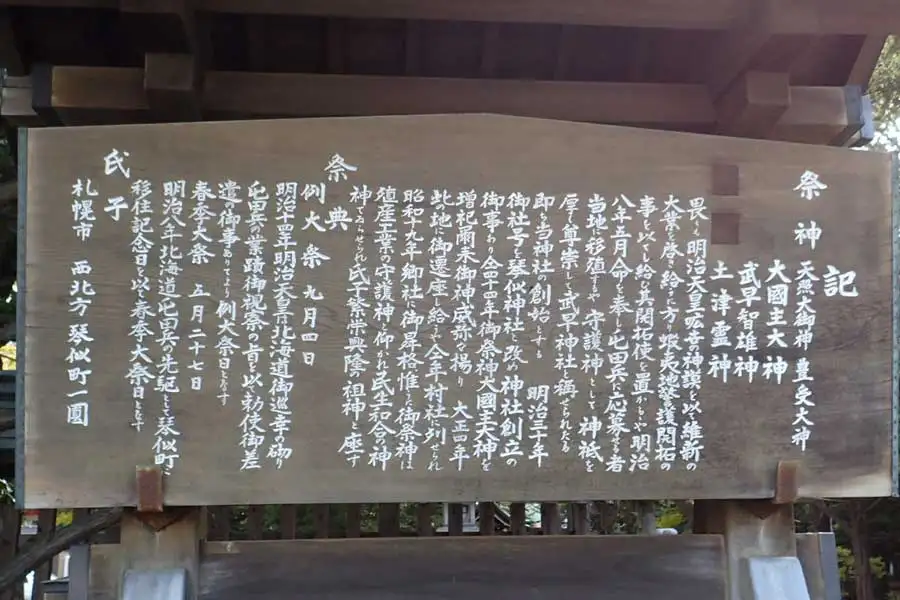 記
祭神 天照大御神 豊受大神
大國主大神
武早智雄神
土津霊神
畏くも明治天皇叡聖神謨を以て維新の
大業を啓き給ふに方り蝦夷地警護開拓の
事を以てし給ひ其開拓使を置かるゝや明治
八年五月命を奉じ屯田兵に應募せる者
当地に移殖するや守護神として神祗を
厚く尊崇して武早神社と稱せられたり
即ち当神社の創始とする 明治三十年
御社号を琴似神社と改め神社創立の
御事あり仝四十四年御祭神大國主大神を
増祀爾来御神威弥々揚り 大正四年
此の地に御遷座し給ふや仝年村社に列せられ
昭和十九年郷社に御昇格惟ふに御祭神は
殖産工業の守護神と仰がれ民生和合の神
神で在らせられ氏子繁栄興隆の祖神と座す
祭典
例大祭 九月四日
明治十四年明治天皇北海道御巡幸の砌り
屯田兵の業蹟御視察の旨を以て勅使御差
遣の御事ありてより例大祭日となす
春季大祭 五月二十七日
明治八年北海道屯田兵の先駆として琴似町に
移住記念日を以て春季大祭日となす
氏子
札幌市 西北方 琴似町一圓